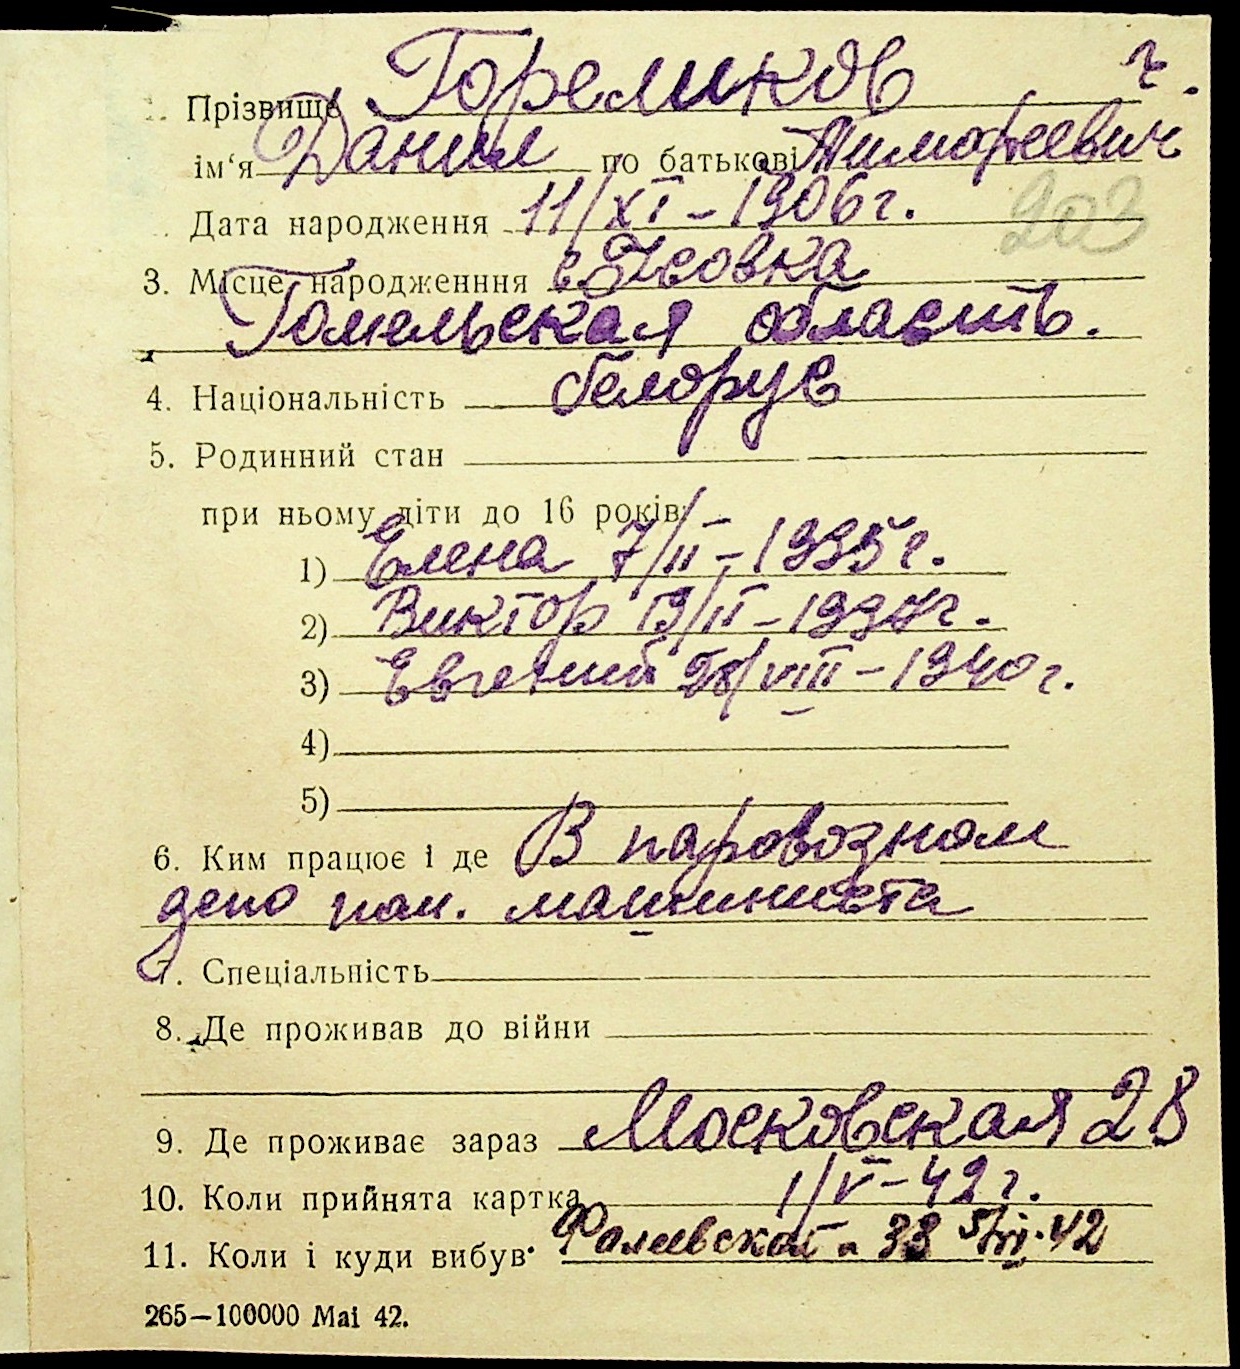 Прізвище Гореликов ч.
ім‘я Данил по батькові Тимофеевич
Дата народження 11/XI – 1906 г.
203
3. Місце народженння с. Усовка
Гомельская область.
4. Національність белорус
5. Родинний стан
при ньому діти до 16 років:
1) Елена 7/II – 1935 г.
2) Виктор 19/II – 1937 г.
3) Евгений 28/VIII – 1940 г.
4)
5)
6. Ким працює і де В паровозном
депо пом. машиниста
7. Спеціальність
8. Де проживав до війни
9. Де проживає зараз Московская 28
10. Коли прийнята картка 1/V – 42 г.
11. Коли і куди вибув 33 42
265—100000 Mai 42.